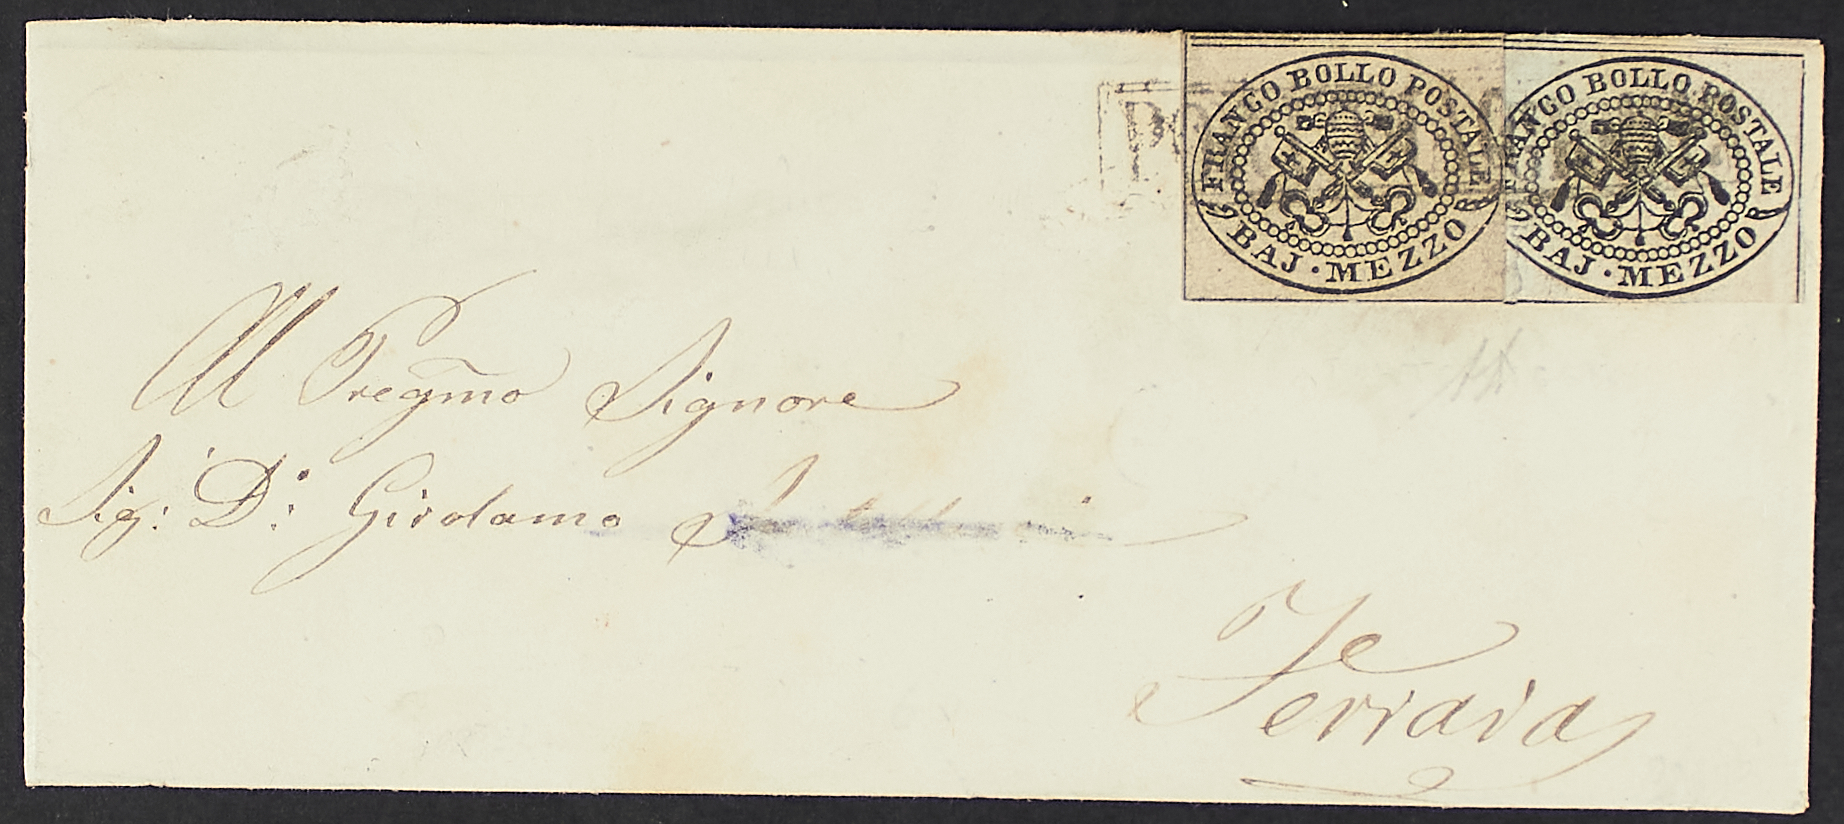 FRANCO BOLLO POSTALE
BAJ · MEZZO
FRANCO BOLLO POSTALE
BAJ · MEZZO
Al Pregmo Signore
Sig: D: Girolamo
Ferrara